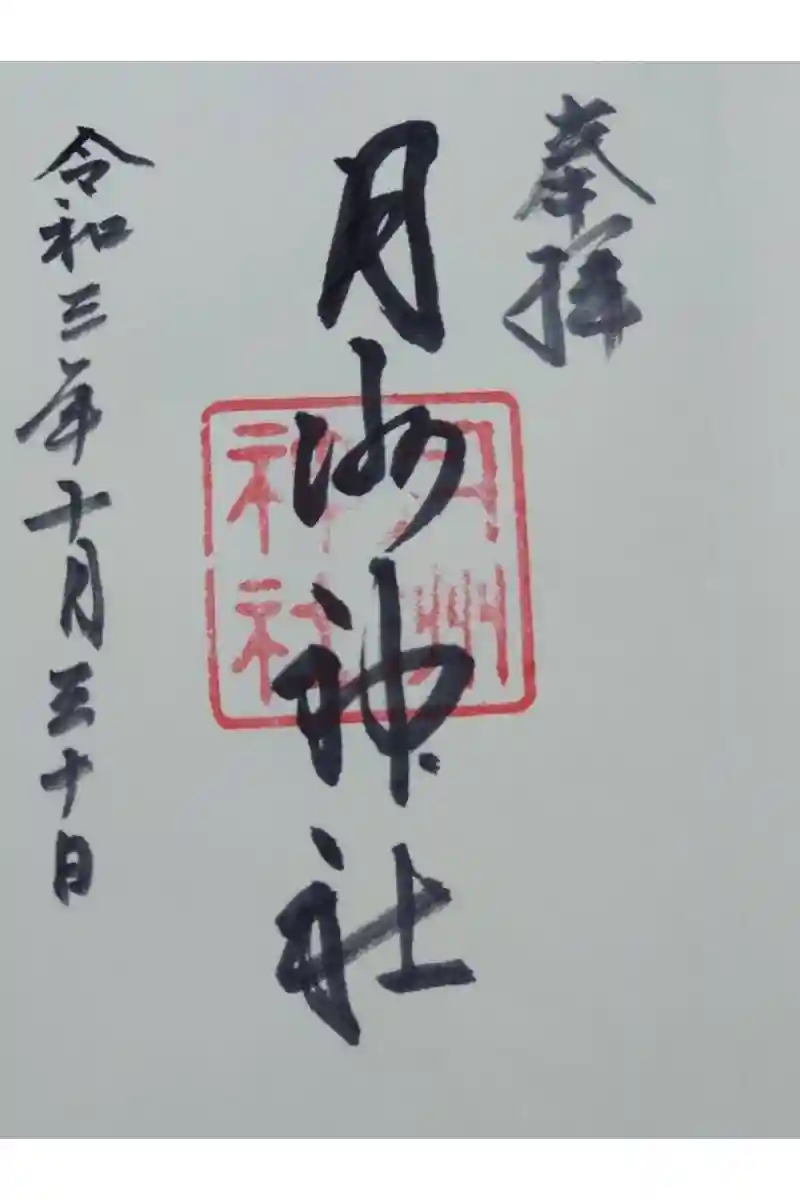 奉拝
月洲神社
月洲神社
令和三年十月三十日